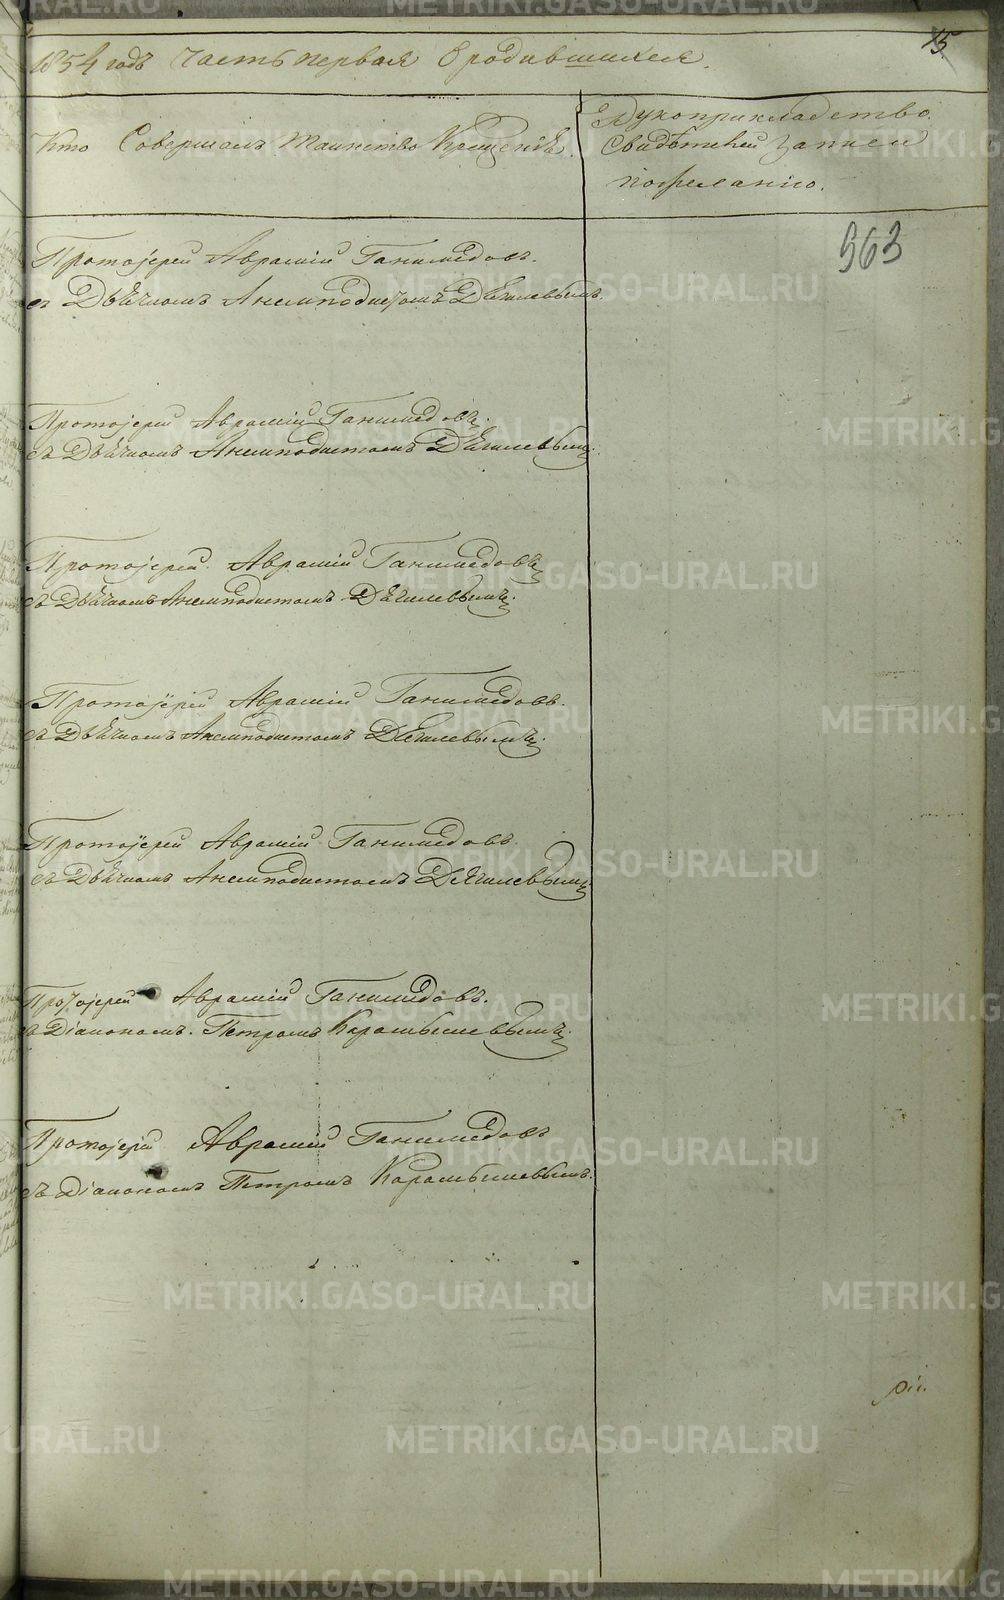 15
1854 годъ Часть первая О родившихся.
Кто Совершалъ Таинство Крещенія.
Рукоприкладство
Свидѣтелей записи
по желанію.
963
Протоіерей Аврамій Ганимедовъ.
съ Дьячкомъ Анемподистомъ Дягилевымъ.
Протоіерей Аврамій Ганимедовъ.
съ Дьячкомъ Анемподистомъ Дягилевымъ.
Протоіерей Аврамій Ганимедовъ
съ Дьячкомъ Анемподистомъ Дягилевымъ.
Протоіерей Аврамій Ганимедовъ.
съ Дьячкомъ Анемподистомъ Дягилевымъ.
Протоіерей Аврамій Ганимедовъ.
съ Дьячкомъ Анемподистомъ Дягилевымъ.
Протоіерей Аврамій Ганимедовъ.
съ Діакономъ Петромъ Карамышевымъ.
Протоіерей Аврамій Ганимедовъ
съ Діакономъ Петромъ Карамышевымъ.
METRIKI.GASO-URAL.RU